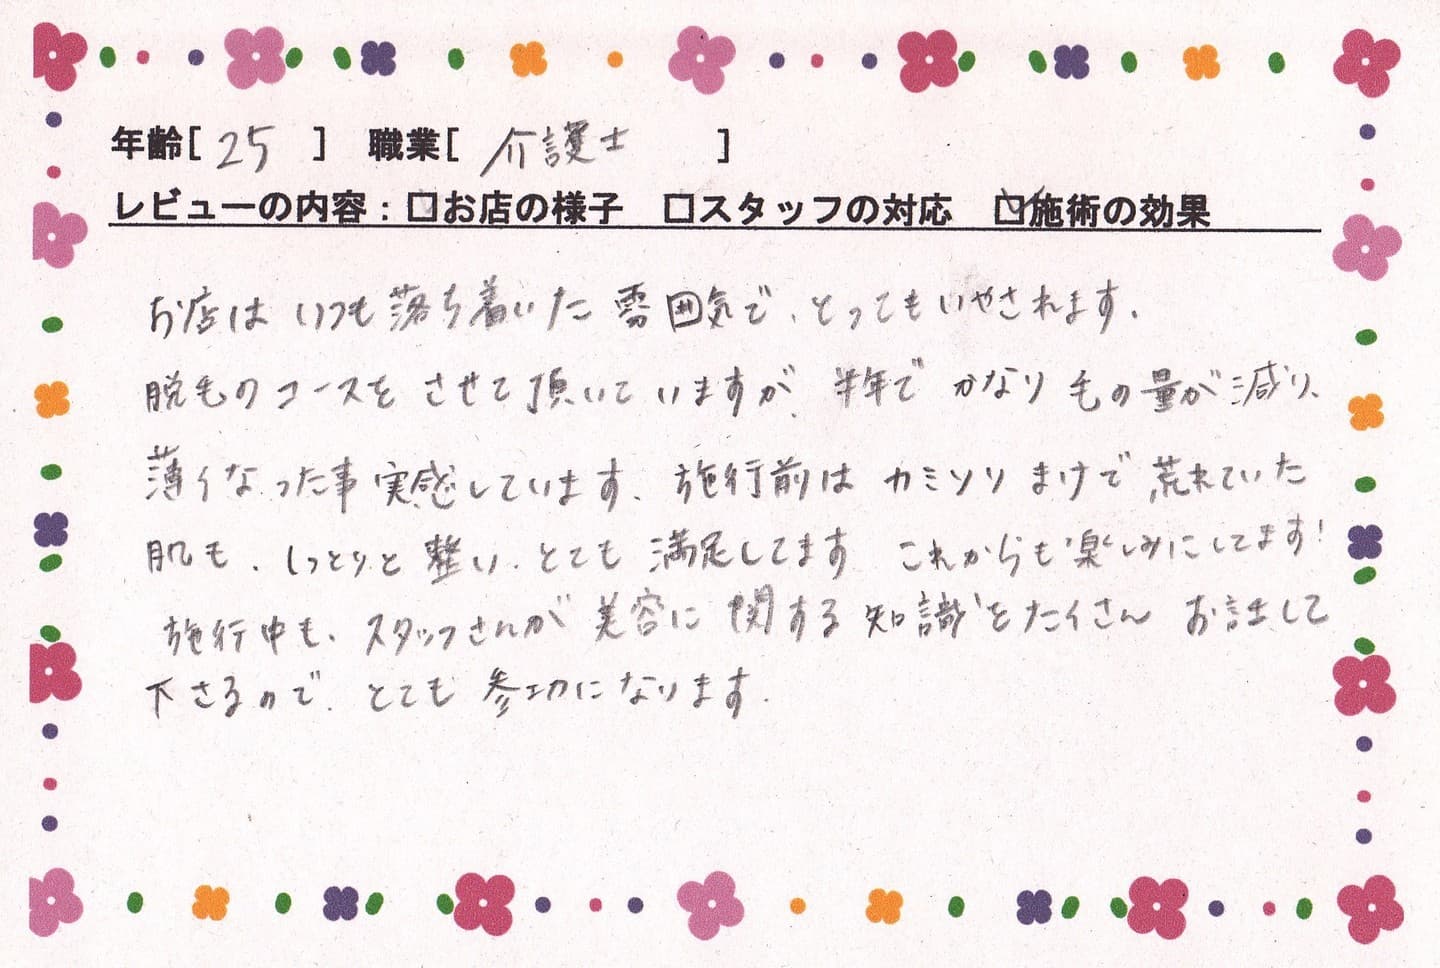 年齢[ 25 ] 職業[ 介護士 ]
レビューの内容：☑お店の様子 ☑スタッフの対応 ☑施術の効果
お店は いつも落ち着いた雰囲気で、とってもいやされます。
脱毛のコースを させて頂いていますが、半年で かなり 毛の量が減り、
薄くなった事実感しています。施行前は カミソリまけで 荒れていた
肌も、しっとりと 整い、とても 満足してます これからも楽しみにしてます！
施行中も、スタッフさんが 美容に 関する 知識をたくさん お話して
下さるので、とても 参功になります。